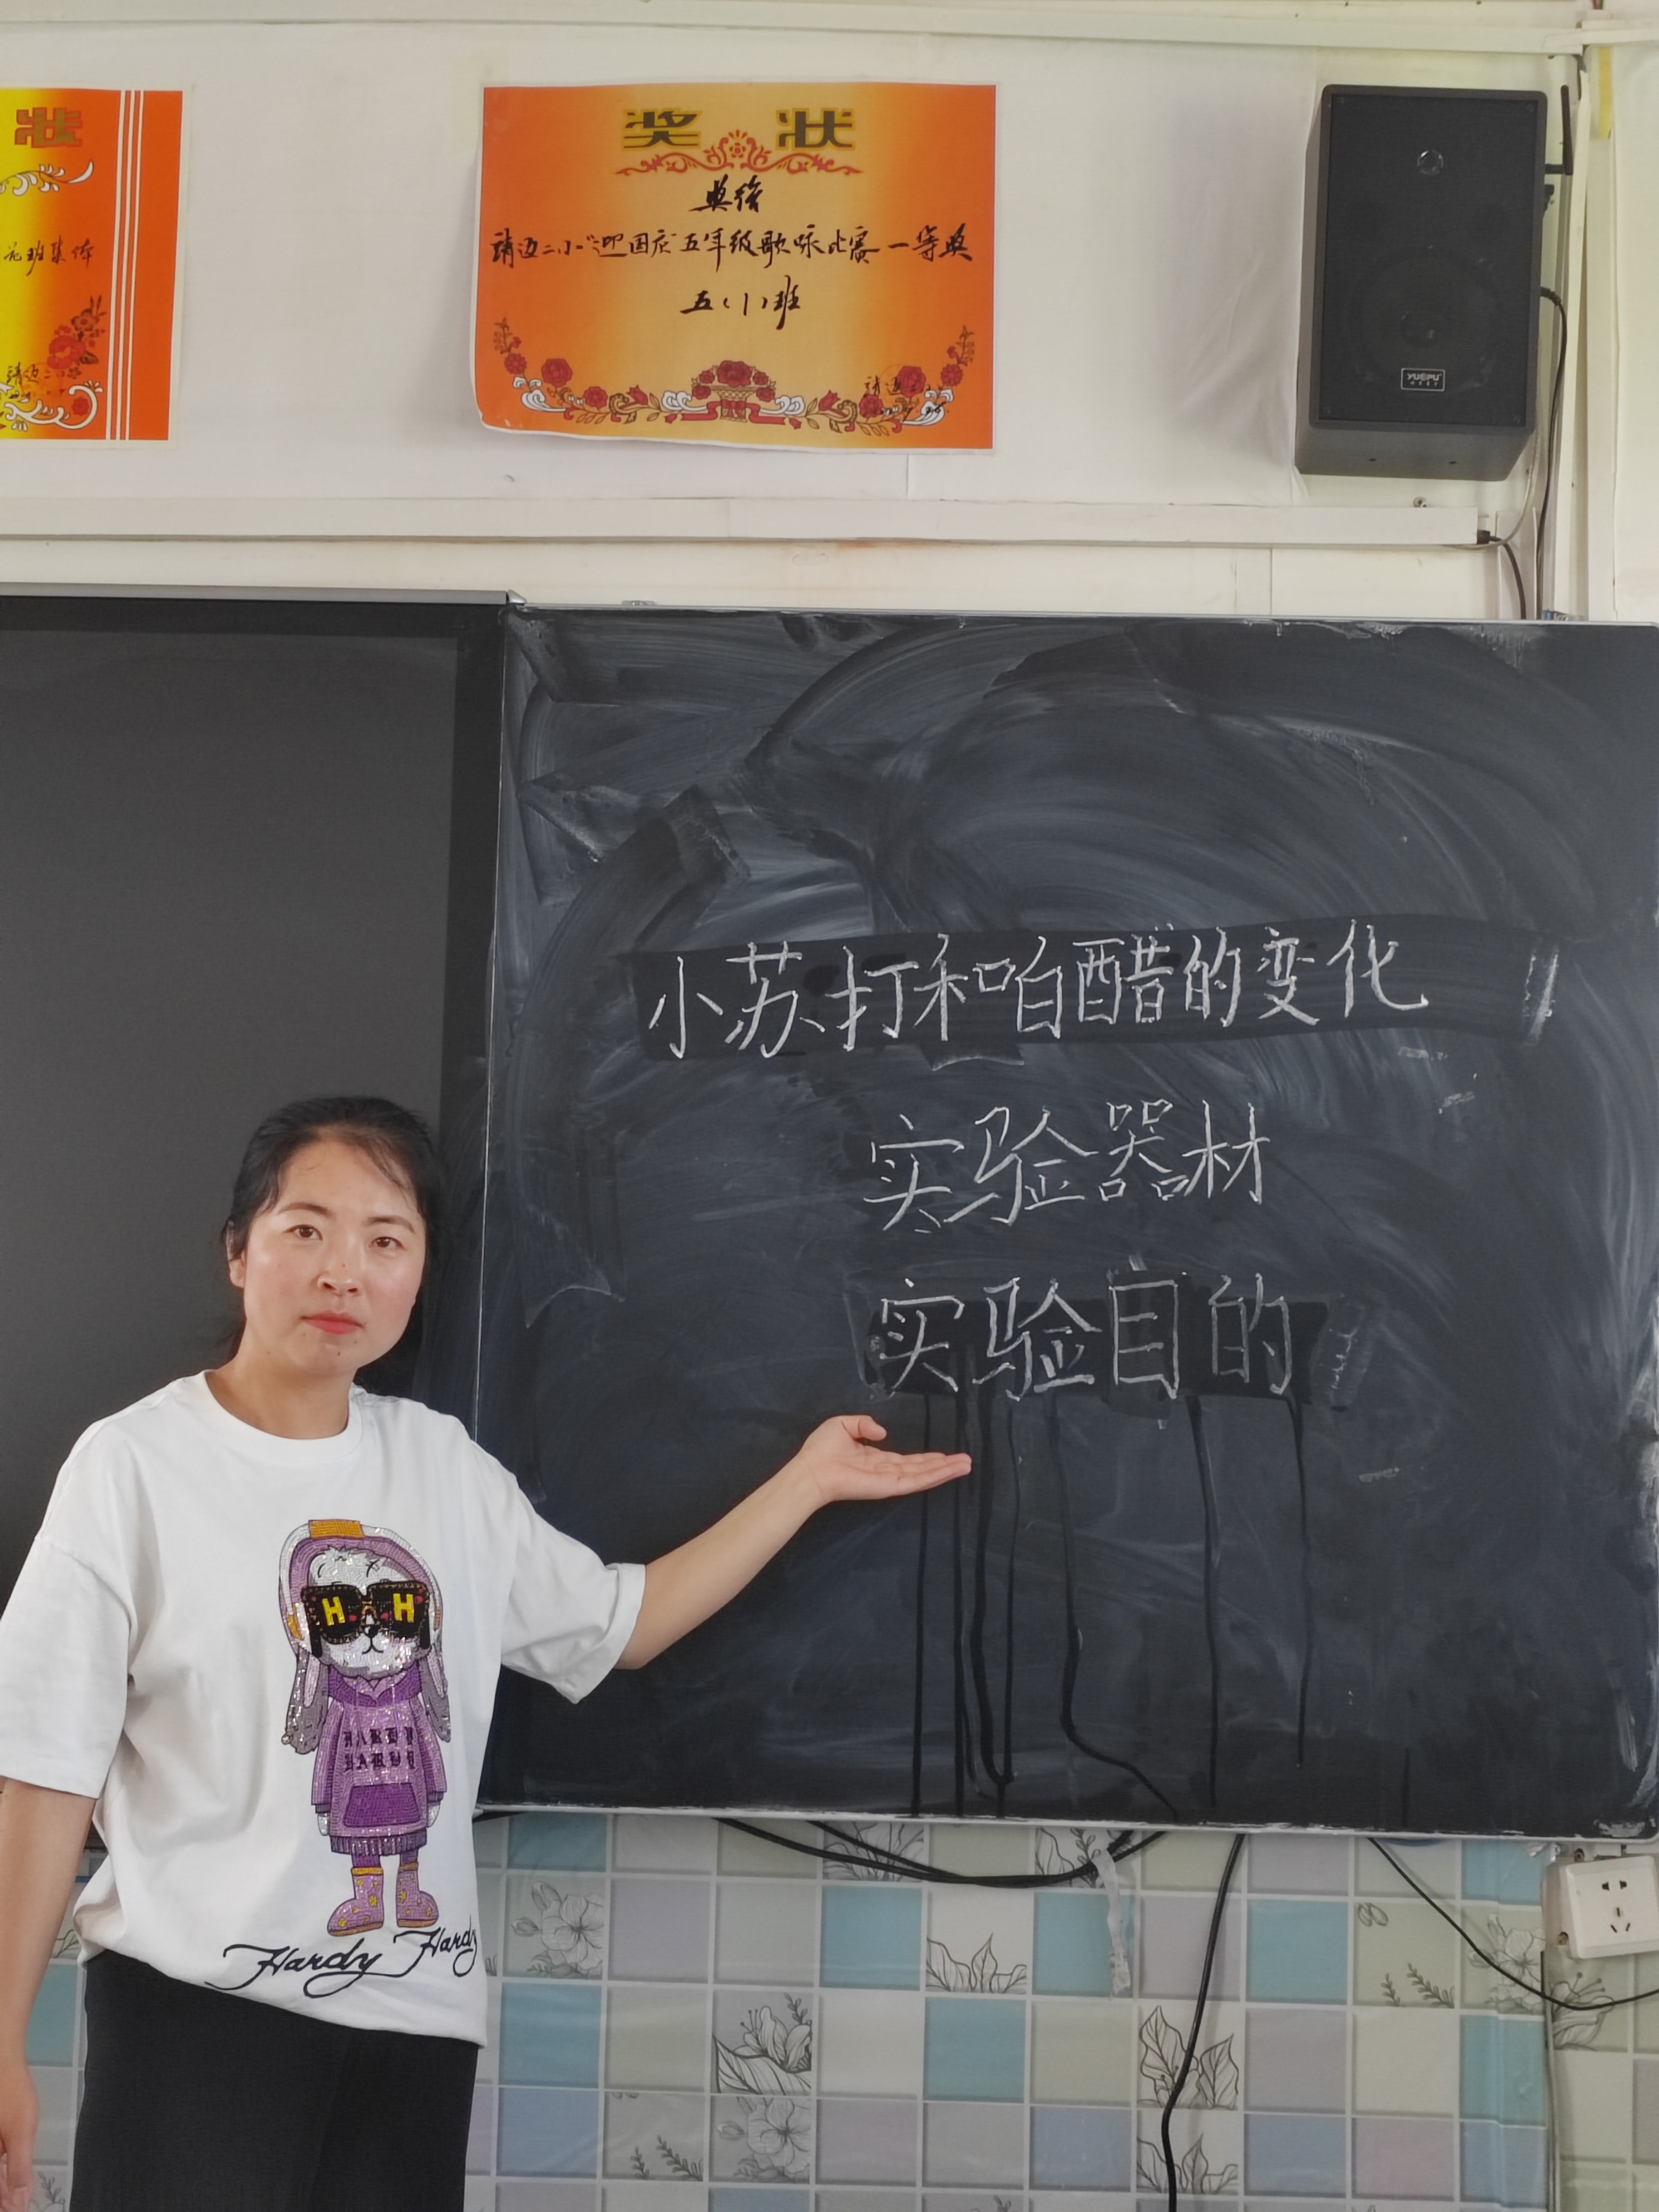 状
奖 状
奖给
靖边二小"迎国庆"五年级歌咏比赛一等奖
五(1)班
靖边二小
花班集体
靖边二小
YUEPU
小苏打和白醋的变化
实验器材
实验目的
H H
HARDY
HARDY
Hardy Hardy